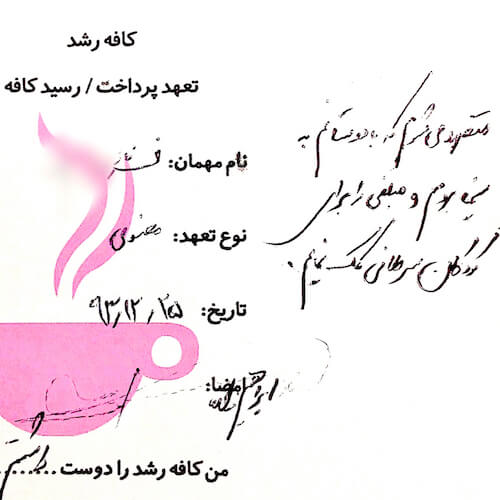 کافه رشد
تعهد پرداخت / رسید کافه
نام مهمان: فرناز
نوع تعهد: معنوی
تاریخ: ۹۳/۱۲/۲۵
امضا:
من کافه رشد را دوست ........ داشتم
متعهد می شوم که با دوستانم به
سینما بروم و مبلغی را برای
کودکان سرطانی کمک نمایم.